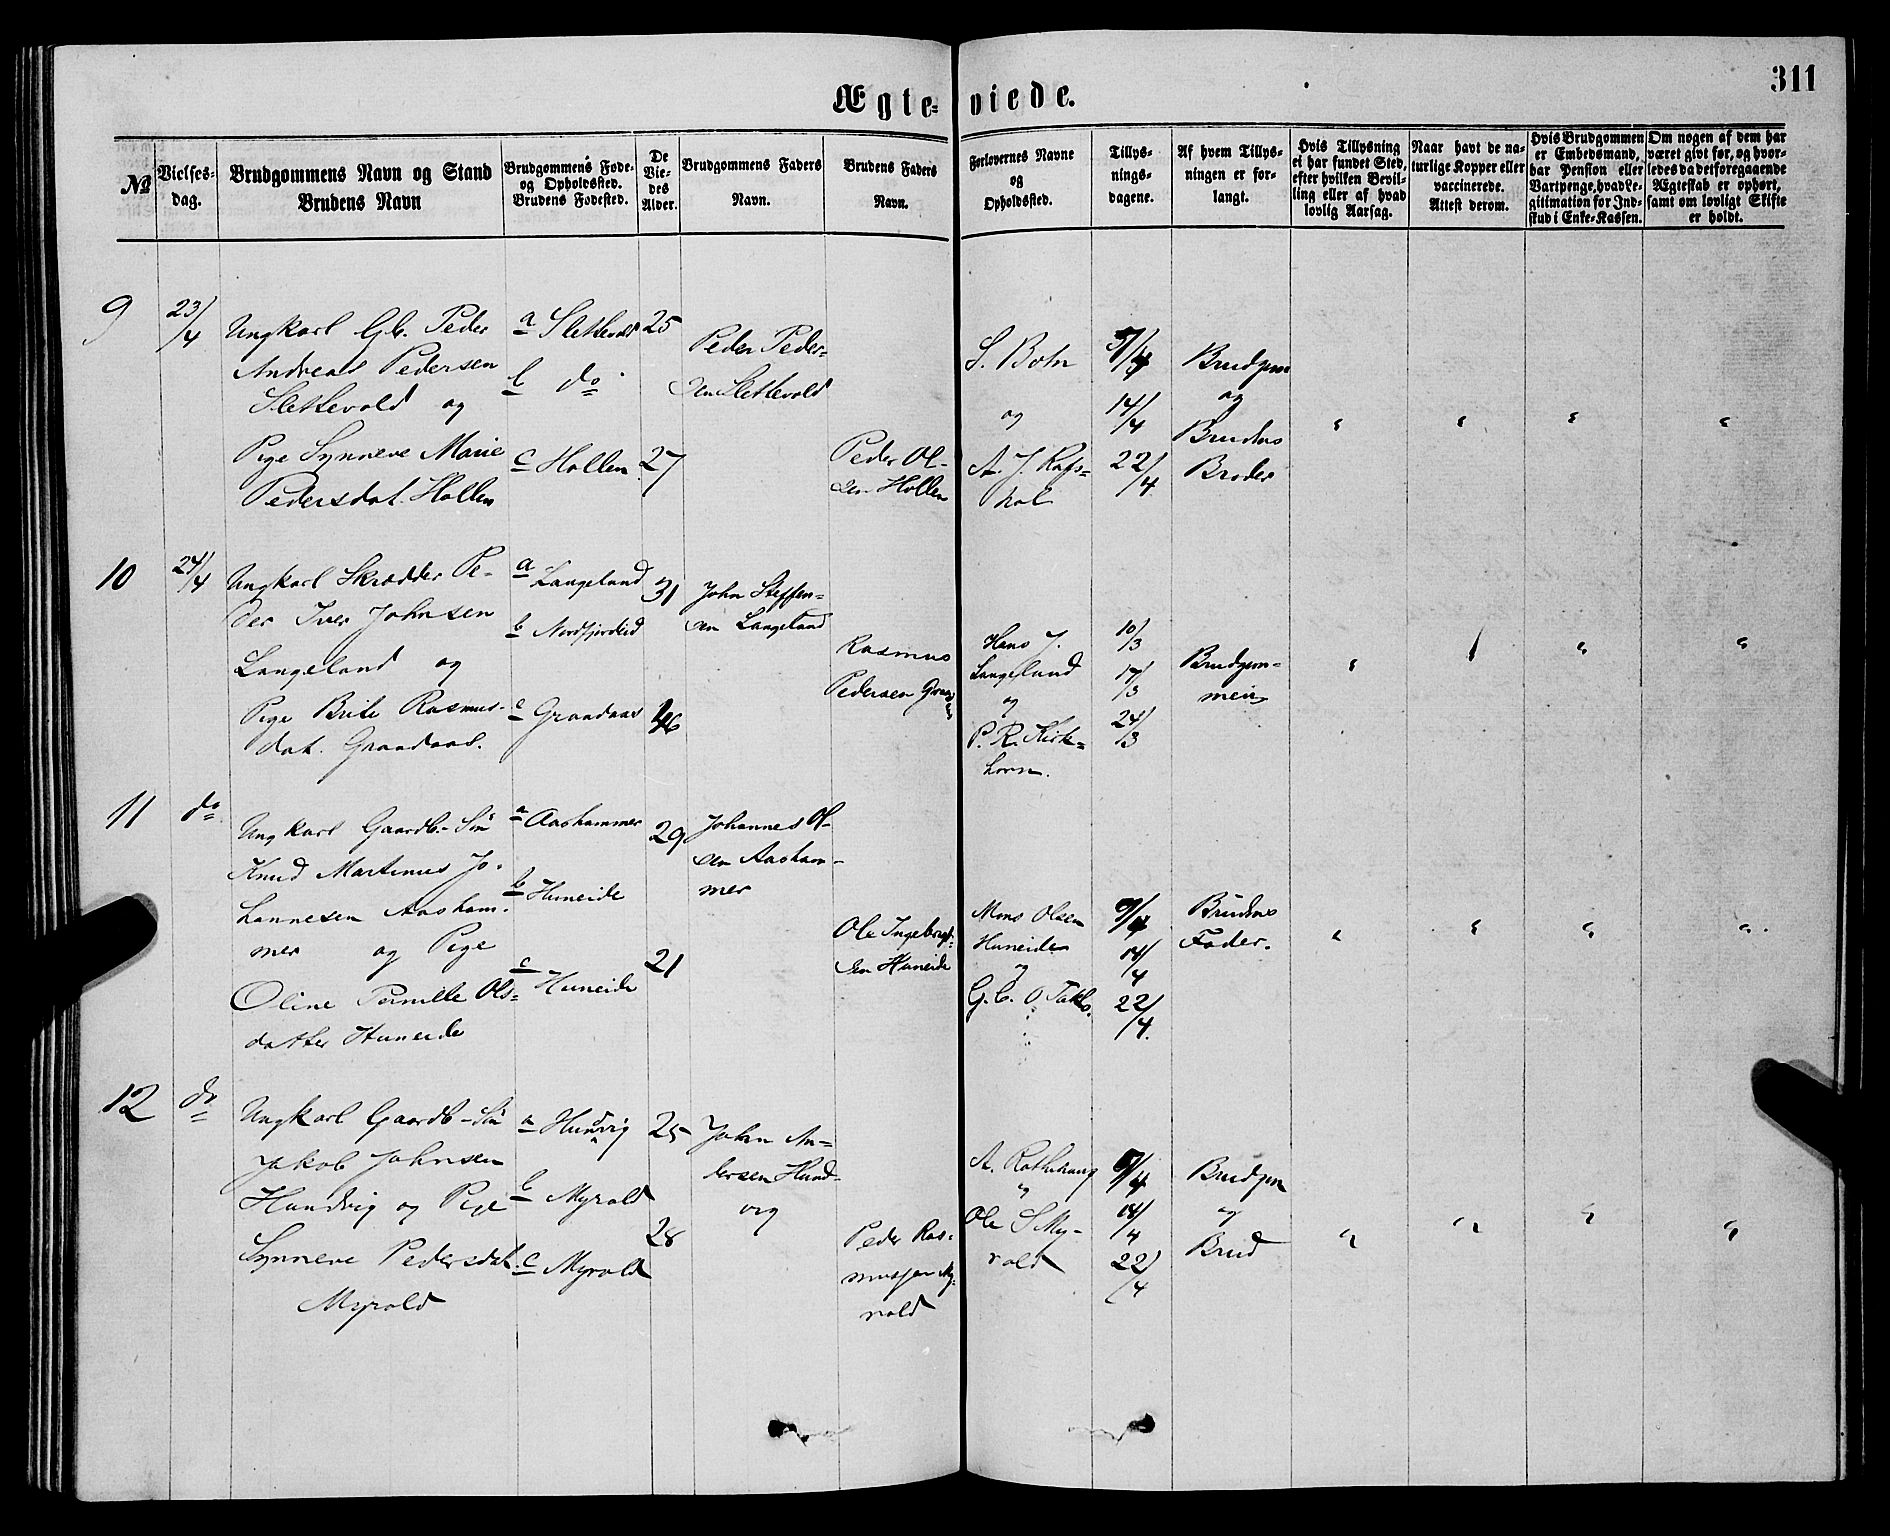 311
Ægteviede.
No
Vielses-
dag.
Brudgommens Navn og Stand
Brudens Navn
Brudgommens Føde-
og Opholdssted.
Brudens Fødested.
De
Vie-
des
Alder.
Brudgommens Faders
Navn.
Brudens Faders
Navn.
Forlovernes Navne
og
Opholdssted.
Tillys-
nings-
dagene.
Af hvem Tillys-
ningen er for-
langt.
Hvis Tillysning
ei har fundet Sted,
efter hvilken Bevil-
ling eller af hvad
lovlig Aarsag.
Naar havt de na-
turlige Kopper eller
vaccinerede.
Attest derom.
Hvis Brudgommen
er Embedsmand,
har Pension eller
Vartpenge, hvad Le-
gitimation for Ind-
skud i Enke-Kassen.
Om nogen af dem har
været givt før, og hvor-
ledes da det foregaaende
Ægteskab er ophørt,
samt om lovligt Skifte
er holdt.
9
23/4
Ungkarl Gb. Peder
Andreas Pedersen
Slettevold og
Pige Synneve Marie
Pedersdat. Hollen
a Slettevold
b do
c Hollen
25
27
Peder Peder-
sen Slettevold
Peder Ol-
sen Hollen
S. Bohn
og
A. J. Rafs-
hol
7/4
14/4
22/4
Brudgom
og
Brudens
Broder
10
24/4
Ungkarl Skrædder Pe-
der Iver Johnsen
Langeland og
Pige Brite Rasmus-
dat. Graadaas.
a Langeland
b Nordfjordeid
c Graadaas
31
46
John Steffen-
sen Langeland
Rasmus
Pedersen Graa
Hans J.
Langeland
og
P. R. Kirk-
horn.
10/3
17/3
24/3
Brudgom-
men
11
do
Ungkarl Gaardb.-Søn
Knud Martinus Jo-
hannesen Aasham-
mer og Pige
Oline Pernille Ols-
datter Huneide
a Aashammer
b Huneide
c Huneide
29
21
Johannes Ol-
sen Aasham-
mer
Ole Ingebrigt-
sen Huneide
Mons Olsen
Huneide
og
G.b. O. Taklo.
9/4
14/4
22/4.
Brudens
Fader.
12
do
Ungkarl Gaardb-Søn
Jakob Johnsen
Hundvig og Pige
Synneve Pedersdat.
Myrold
a Hundvig
b Myrold
c Myrold
25
28
John An-
dersen Hund-
vig
Peder Ras-
mussen My-
rold
A. Rotehaug
og
Ole S My-
rold
14/4
22/4
Brudgom
og
Brud